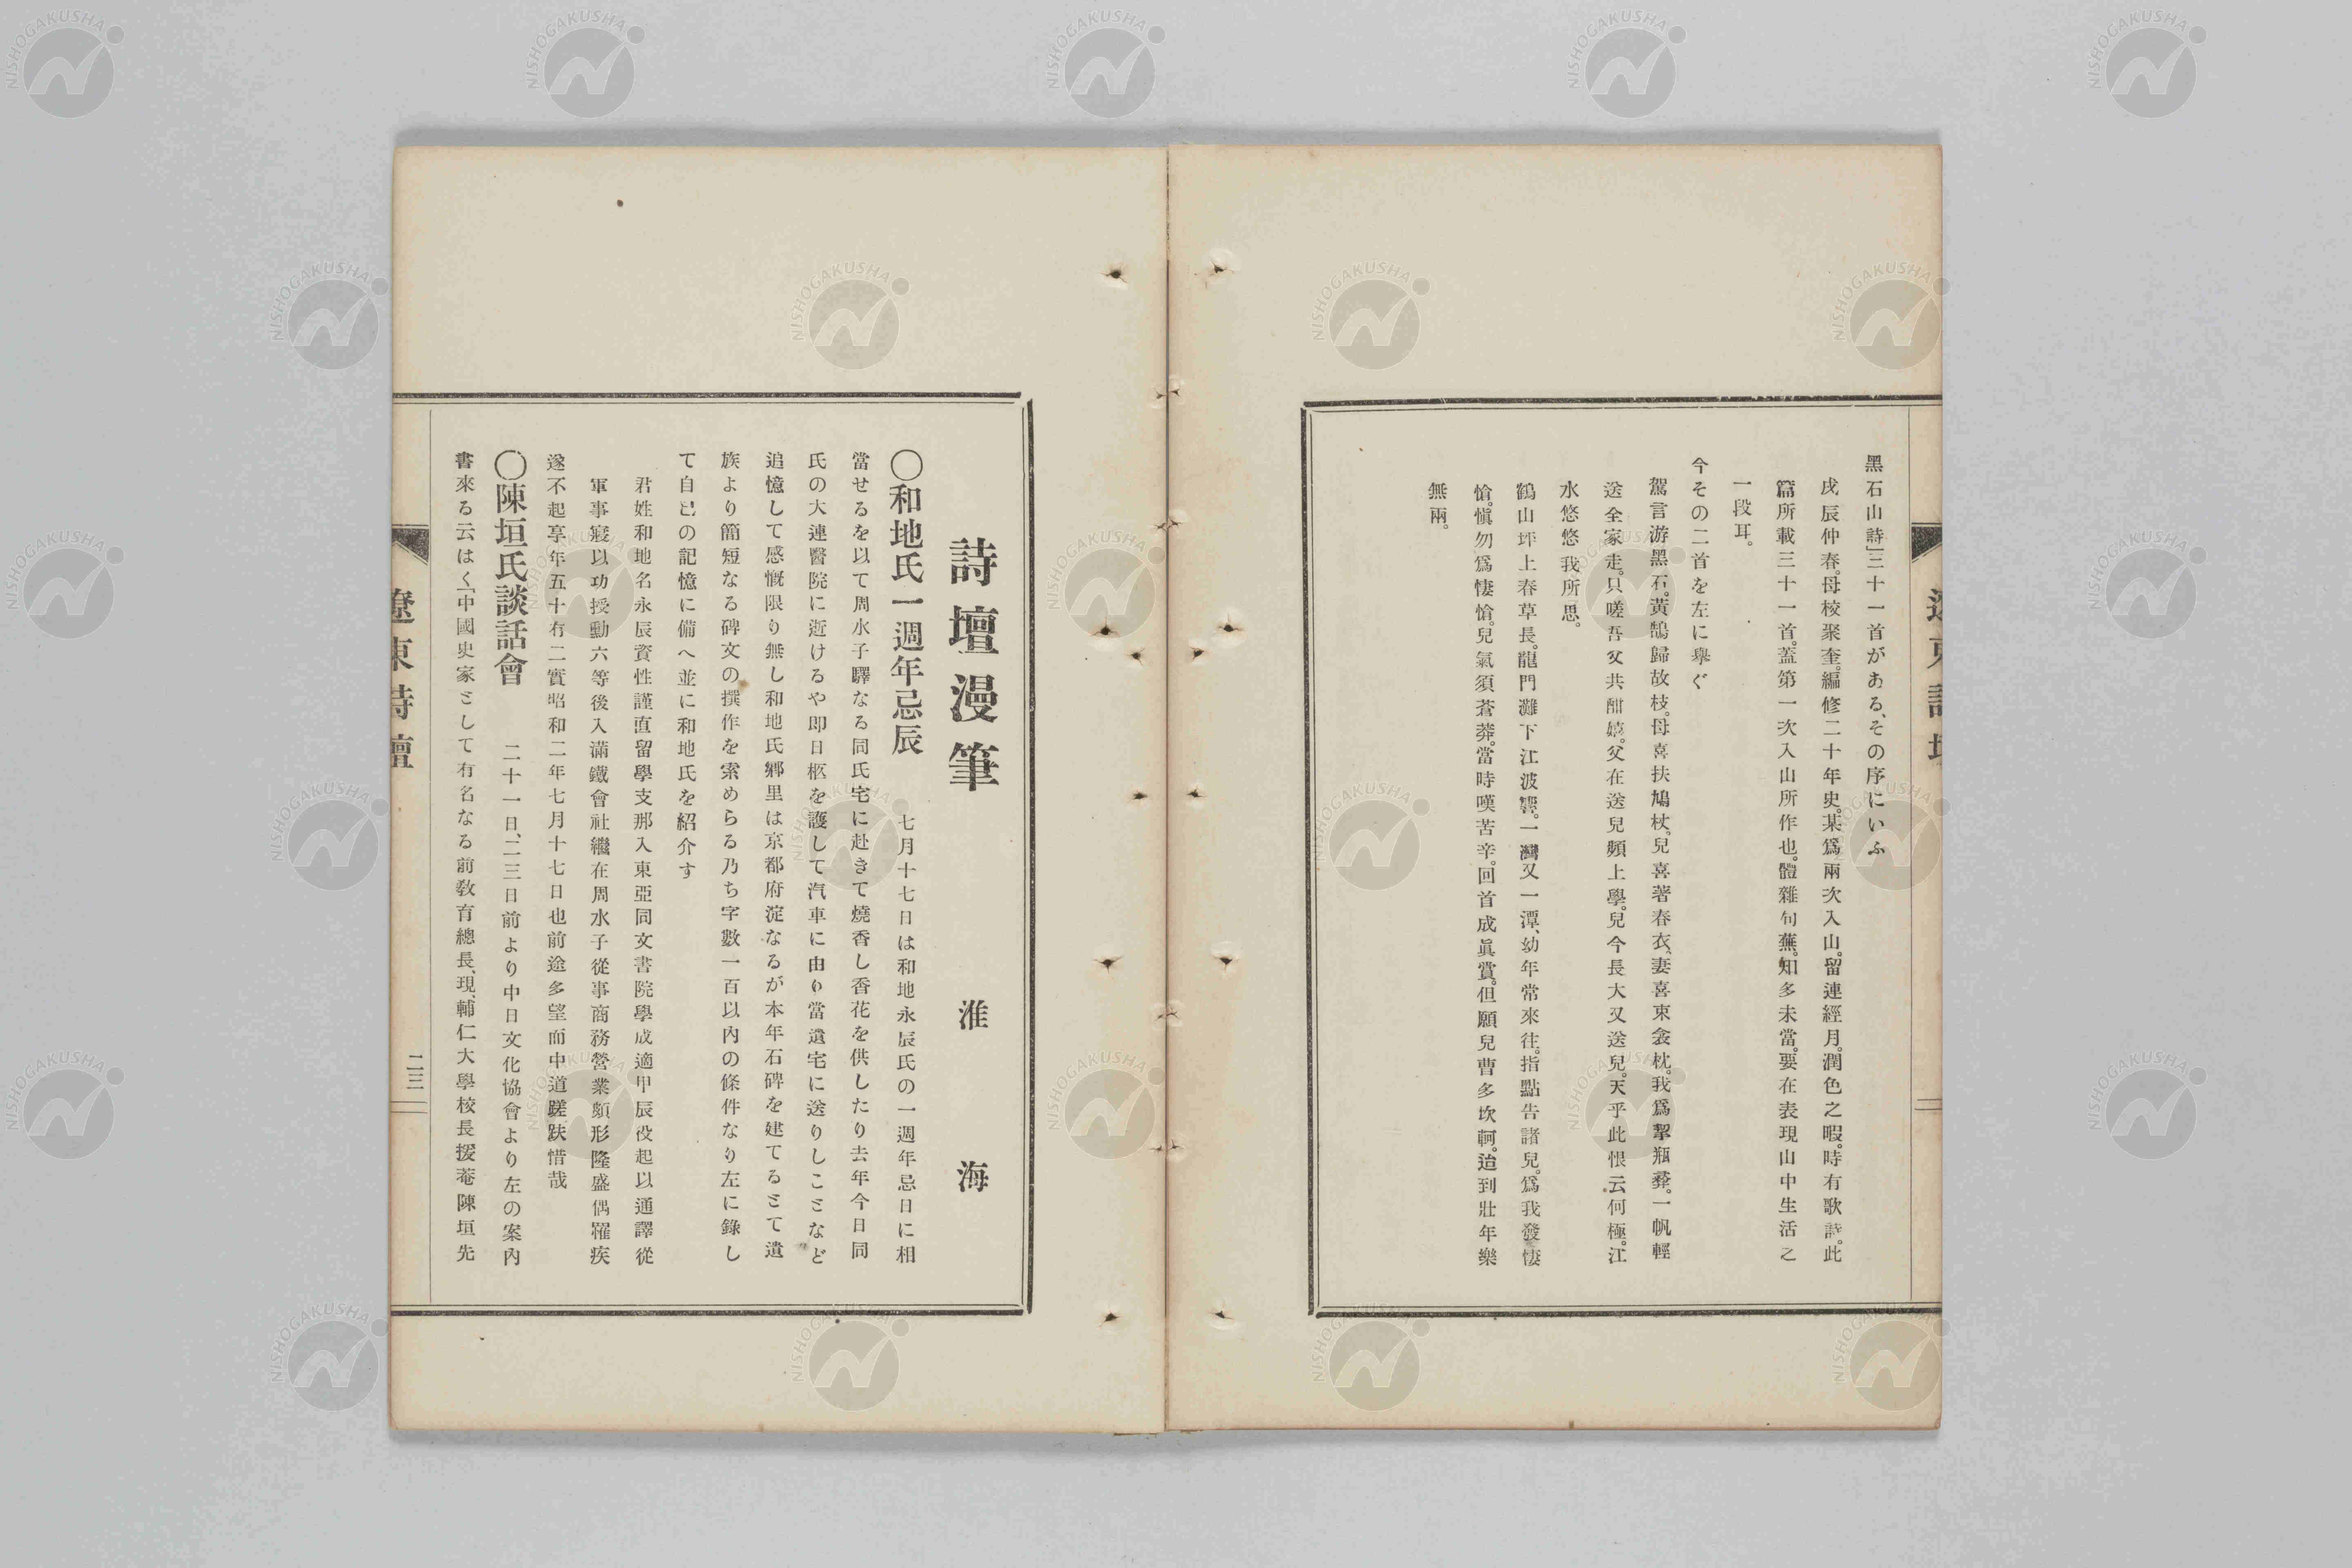 黑石山詩」三十一首がある、その序にいふ
戊辰仲春。母校聚奎。編修二十年史。某爲兩次入山。留連經月。潤色之暇。時有歌詩。此
篇所載三十一首。蓋第一次入山所作也。體雜句蕪。知多未當。要在表現山中生活之
一段耳。
今その二首を左に舉ぐ
駕言游黑石。黃鵠歸故枝。母喜扶鳩杖。兒喜著春衣。妻喜束衾枕。我爲挈瓶彝。一帆輕
送全家走。只嗟吾父共酣嬉。父在送兒頻上學。兒今長大又送兒。天乎此恨云何極。江
水悠悠我所思。
鶴山坪上春草長。龍門灘下江波響。一灣又一潭、幼年常來往。指點告諸兒。爲我發悽
愴。愼勿爲悽愴。兒氣須蒼莽。當時嘆苦辛。回首成眞賞。但願兒曹多坎軻。迨到壯年樂
無兩。
遼東詩壇
詩壇漫筆 淮海
〇和地氏一週年忌辰 七月十七日は和地永辰氏の一週年忌日に相
當せるを以て周水子驛なる同氏宅に赴きて燒香し香花を供したり去年今日同
氏の大連醫院に逝けるや卽日柩を護して汽車に由り當遺宅に送りしことなど
追憶して感慨限り無し和地氏鄉里は京都府淀なるが本年石碑を建てるとて遺
族より簡短なる碑文の撰作を索めらる乃ち字數一百以內の條件なり左に錄し
て自已の記憶に備へ並に和地氏を紹介す
君姓和地名永辰資性謹直留學支那入東亞同文書院學成適甲辰役起以通譯從
軍事竣以功授勳六等後入滿鐵會社繼在周水子從事商務營業頗形隆盛偶罹疾
遂不起享年五十有二實昭和二年七月十七日也前途多望而中道蹉趺惜哉
〇陳垣氏談話會 二十一日、二三日前より中日文化協會より左の案內
書來る云はく「中國史家として有名なる前敎育總長、現、輔仁大學校長援菴陳垣先
遼東詩壇
二三